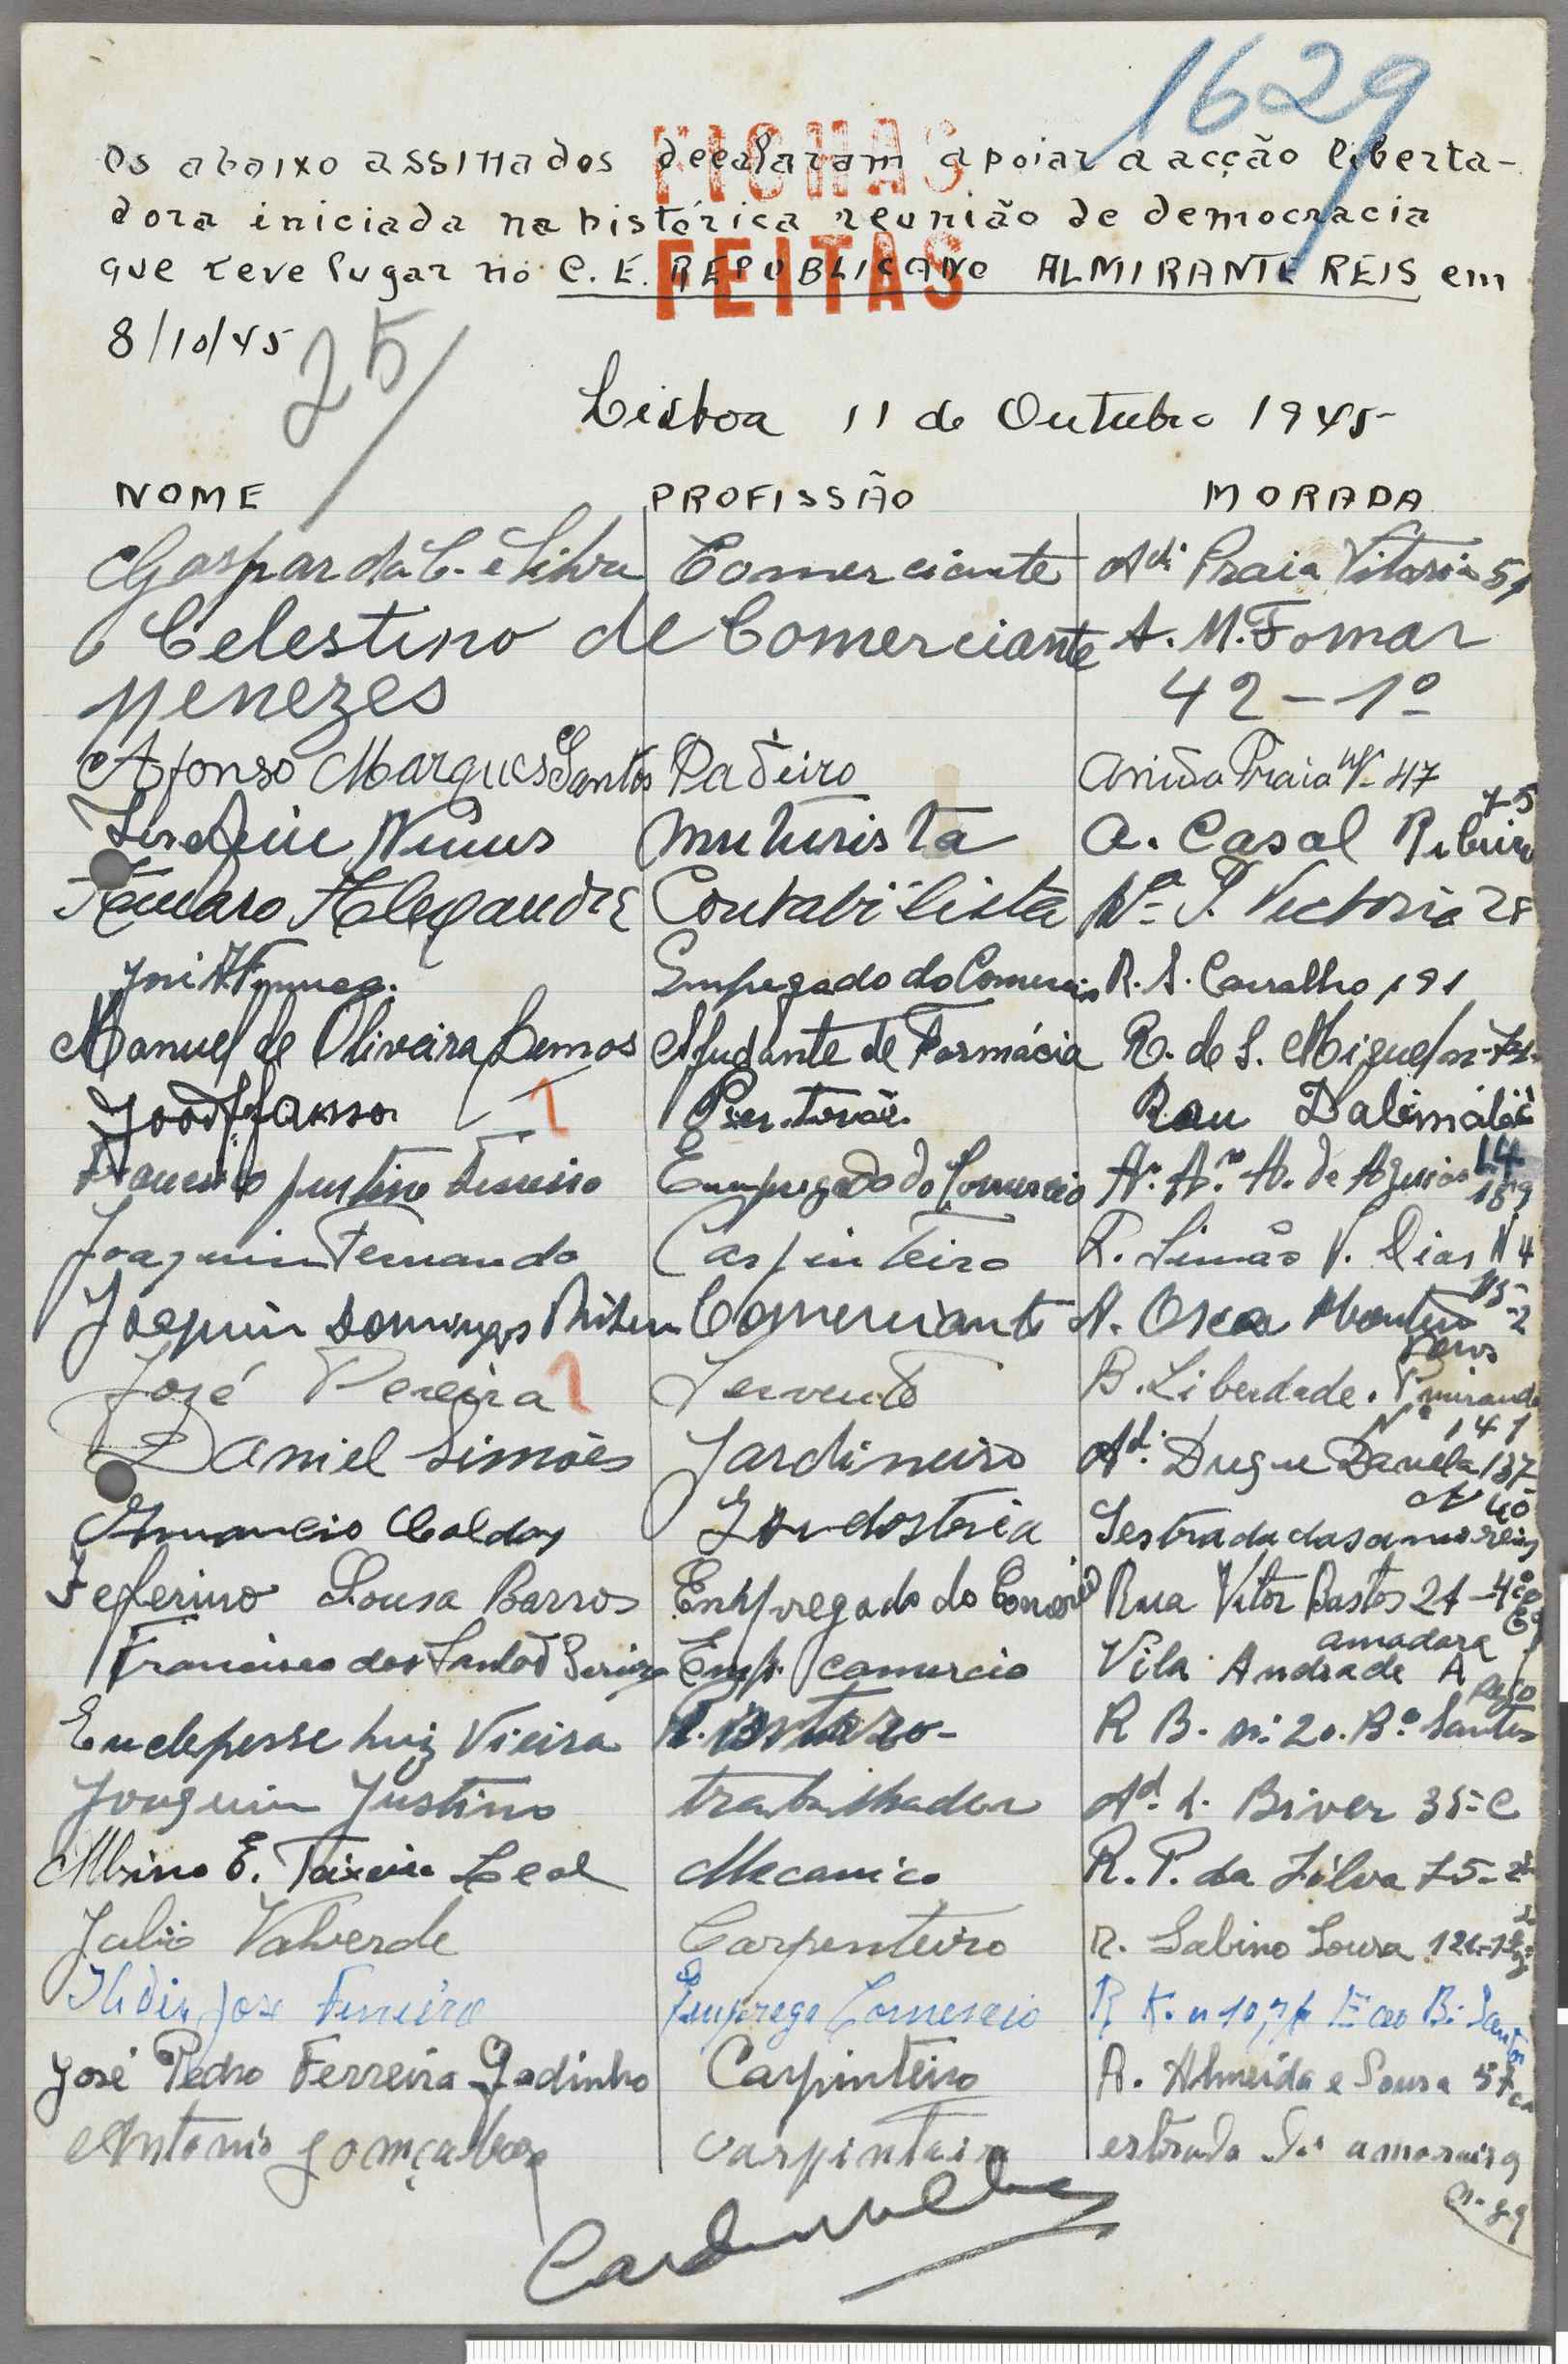 1629
FICHAS
FEITAS
Os abaixo assinados declaram apoiar a acção liberta-
dora iniciada na histórica reunião de democracia
que teve lugar no C. E. REPUBLICANO ALMIRANTE REIS em
8/10/45
25
Lisboa 11 de Outubro 1945
NOME PROFISSÃO MORADA
Gaspar da C. e Silva Comerciante Praia Vitoria 51
Celestino de Comerciante A. M. Tomar
Menezes 42-1º
Afonso Marques Santos Padeiro Praia 47
Nunes Muturista A. Casal Ribeiro
Alexandre Contabilista P. Victoria 28
Empregado do Comercio R. S. Carvalho 191
Manuel de Oliveira Lemos Ajudante de Farmácia R. de S. Miguel
1
Justino Empregado do Comercio A. A. A. de Aguiar
Joaquim Fernando Carpinteiro R. Simão V. Dias N 4
Joaquim Domingos Comerciante A. Monteiro
José Pereira 1 Servente B. Liberdade.
Nº 141
Daniel Simões Jardineiro Duque Davela 137
Caldas
Zeferino Sousa Barros Empregado do Comercio Rua Vitor Bastos 21-4º
amadora
Francisco dos Santos Emp. comercio Vila Andrade A
Luiz Vieira R B. nº 20. Bº Santos
Joaquim Justino trabalhador Biver 35-C
Albino E. Teixeira Leal Mecanico R. P. da Silva 75-2º
Julio Valverde Carpenteiro R. Sabino Sousa
Ilidio Jose Ferreira Comercio R K. n 10
José Pedro Ferreira Gadinho Carpinteiro R. Almeida e Sousa 57
Antonio gonçalves carpinteiro estrada amoreira
n. 89